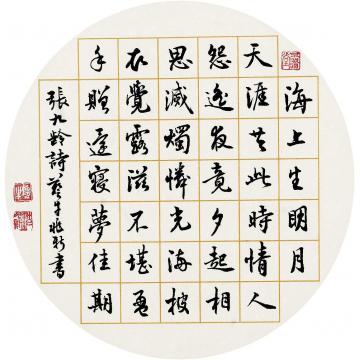 海上生明月
天涯共此時情人
怨遙夜竟夕起相
思滅燭憐光滿披
衣覺露滋不堪盈
手贈還寢夢佳期
張九齡詩 書